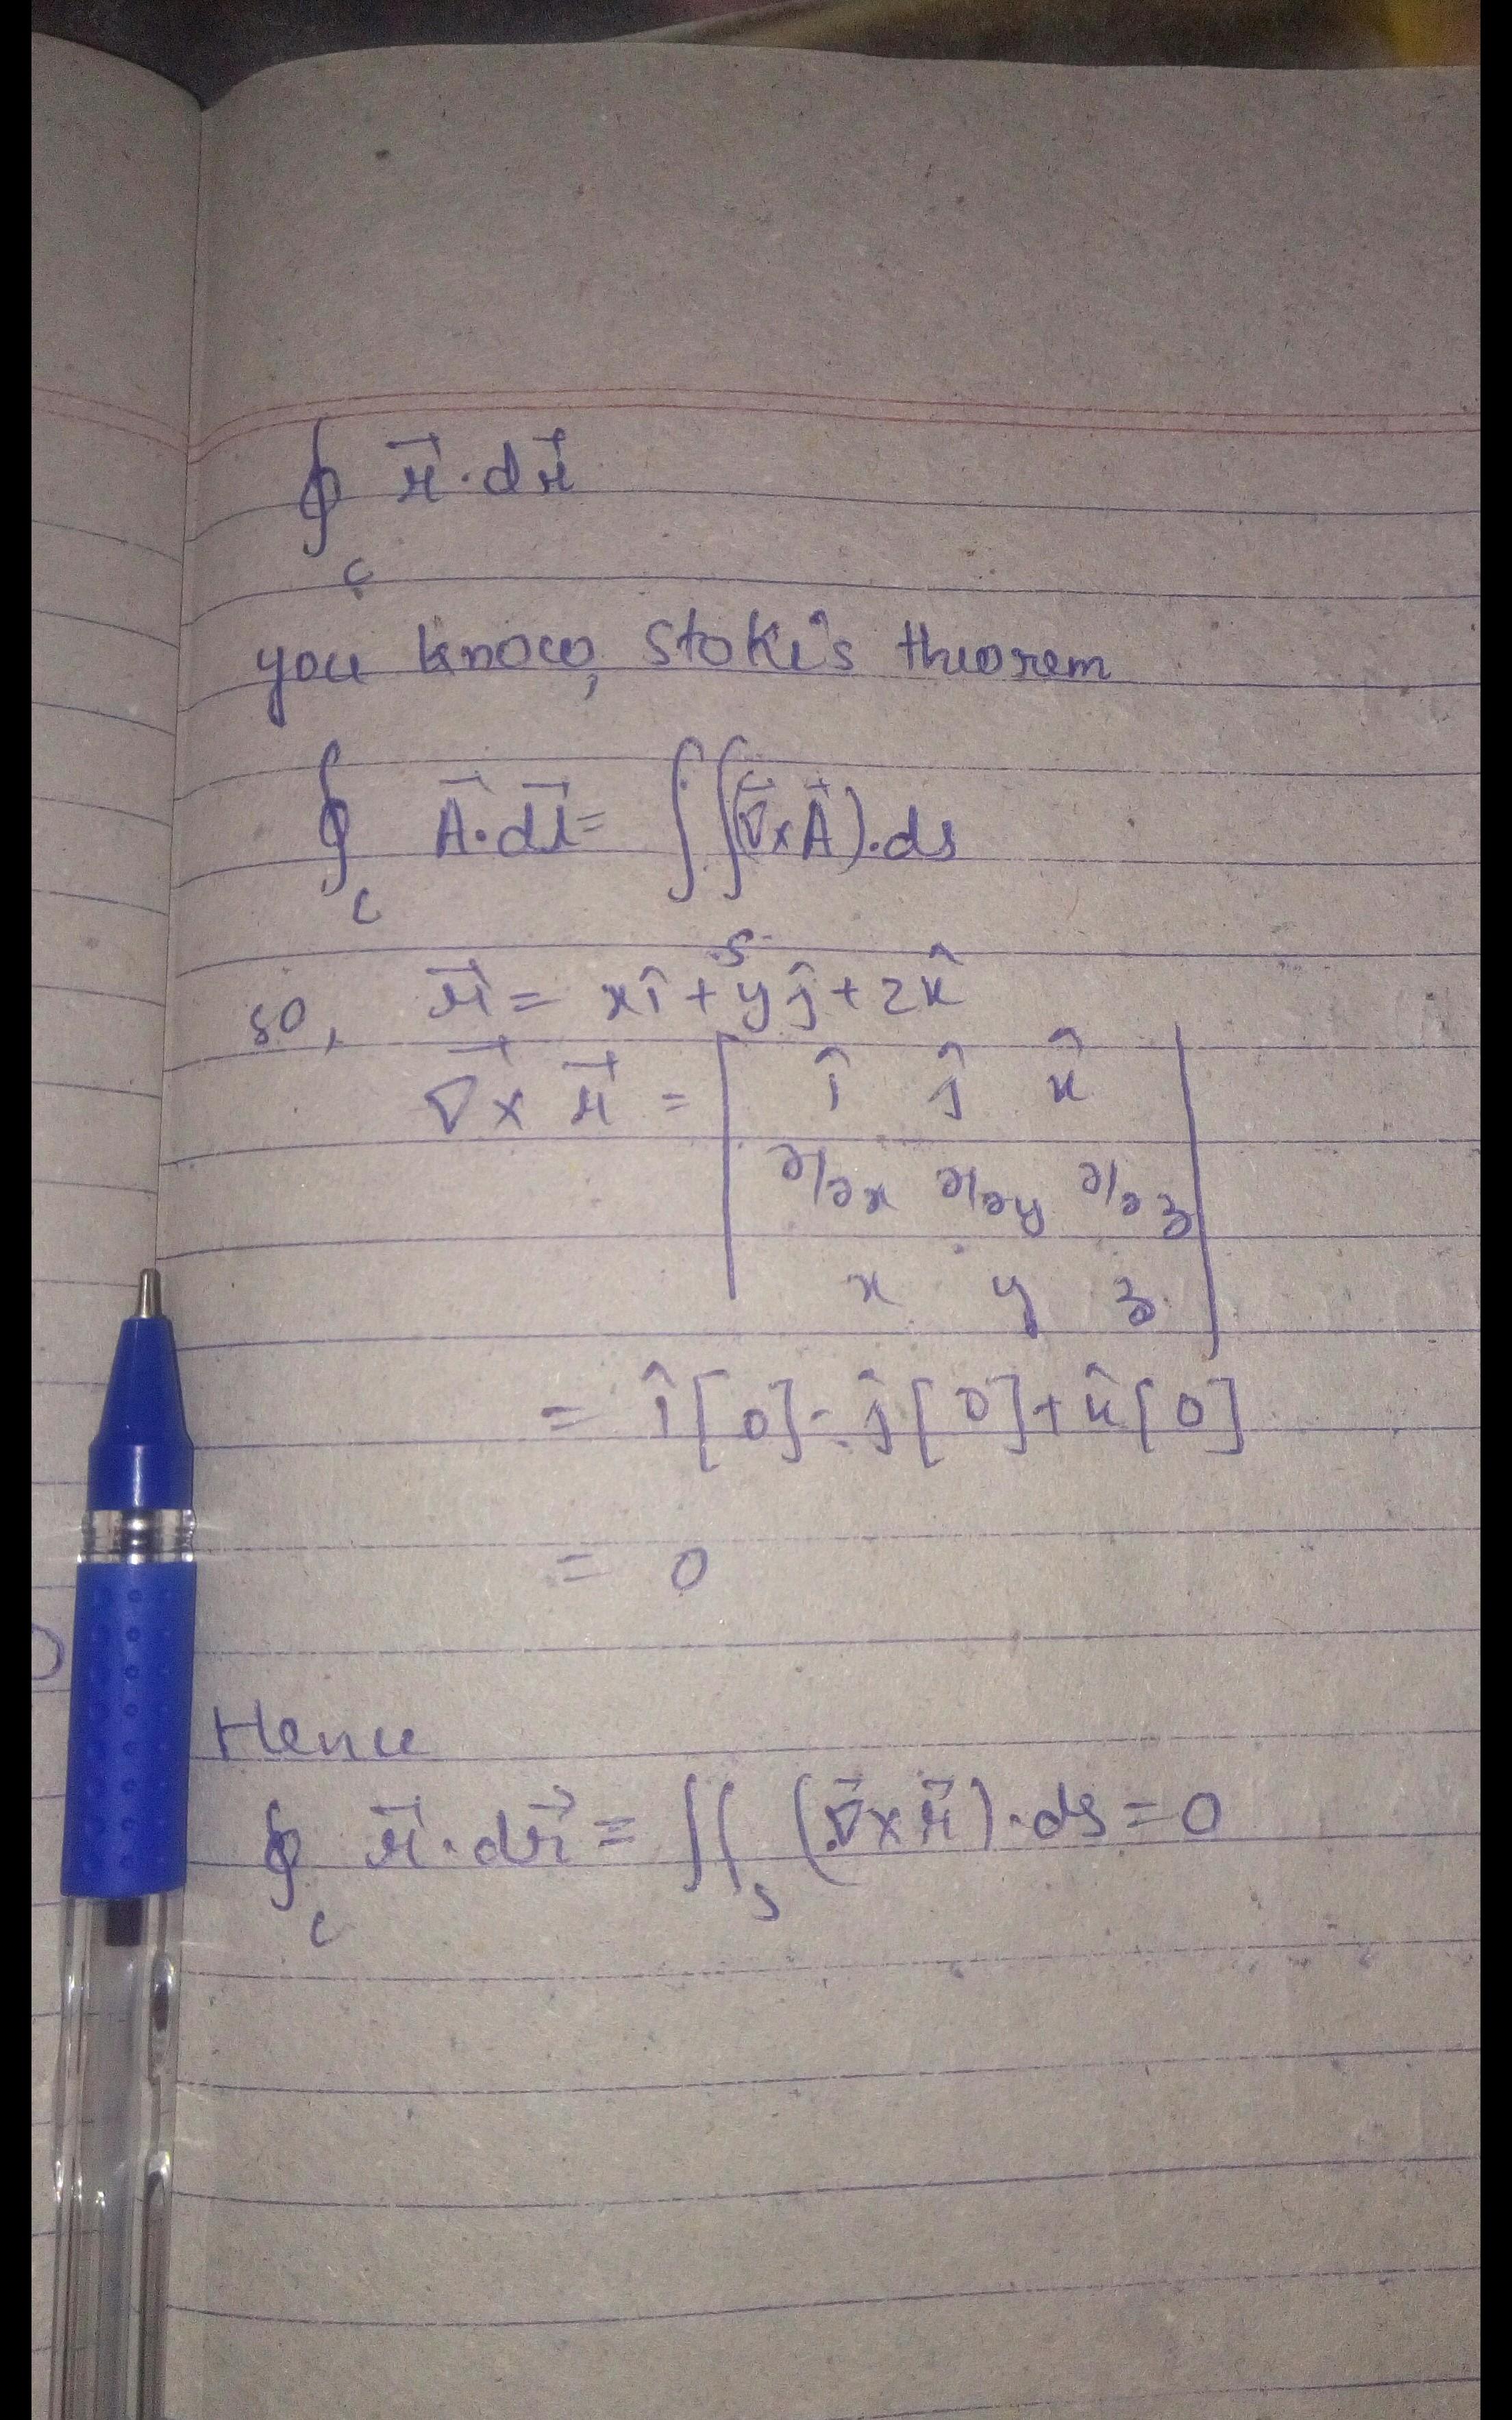 ∮_C r⃗ · dr⃗
you know, Stoke's theorem
∮_C A⃗ · dl⃗ = ∬_S (∇⃗ × A⃗) · ds
so, r⃗ = xî + yĵ + zk̂
∇⃗ × r⃗ = | î ĵ k̂ |
∂/∂x ∂/∂y ∂/∂z
x y z
= î[0] - ĵ[0] + k̂[0]
= 0
Hence
∮_C r⃗ · dr⃗ = ∬_S (∇⃗ × r⃗) · ds = 0